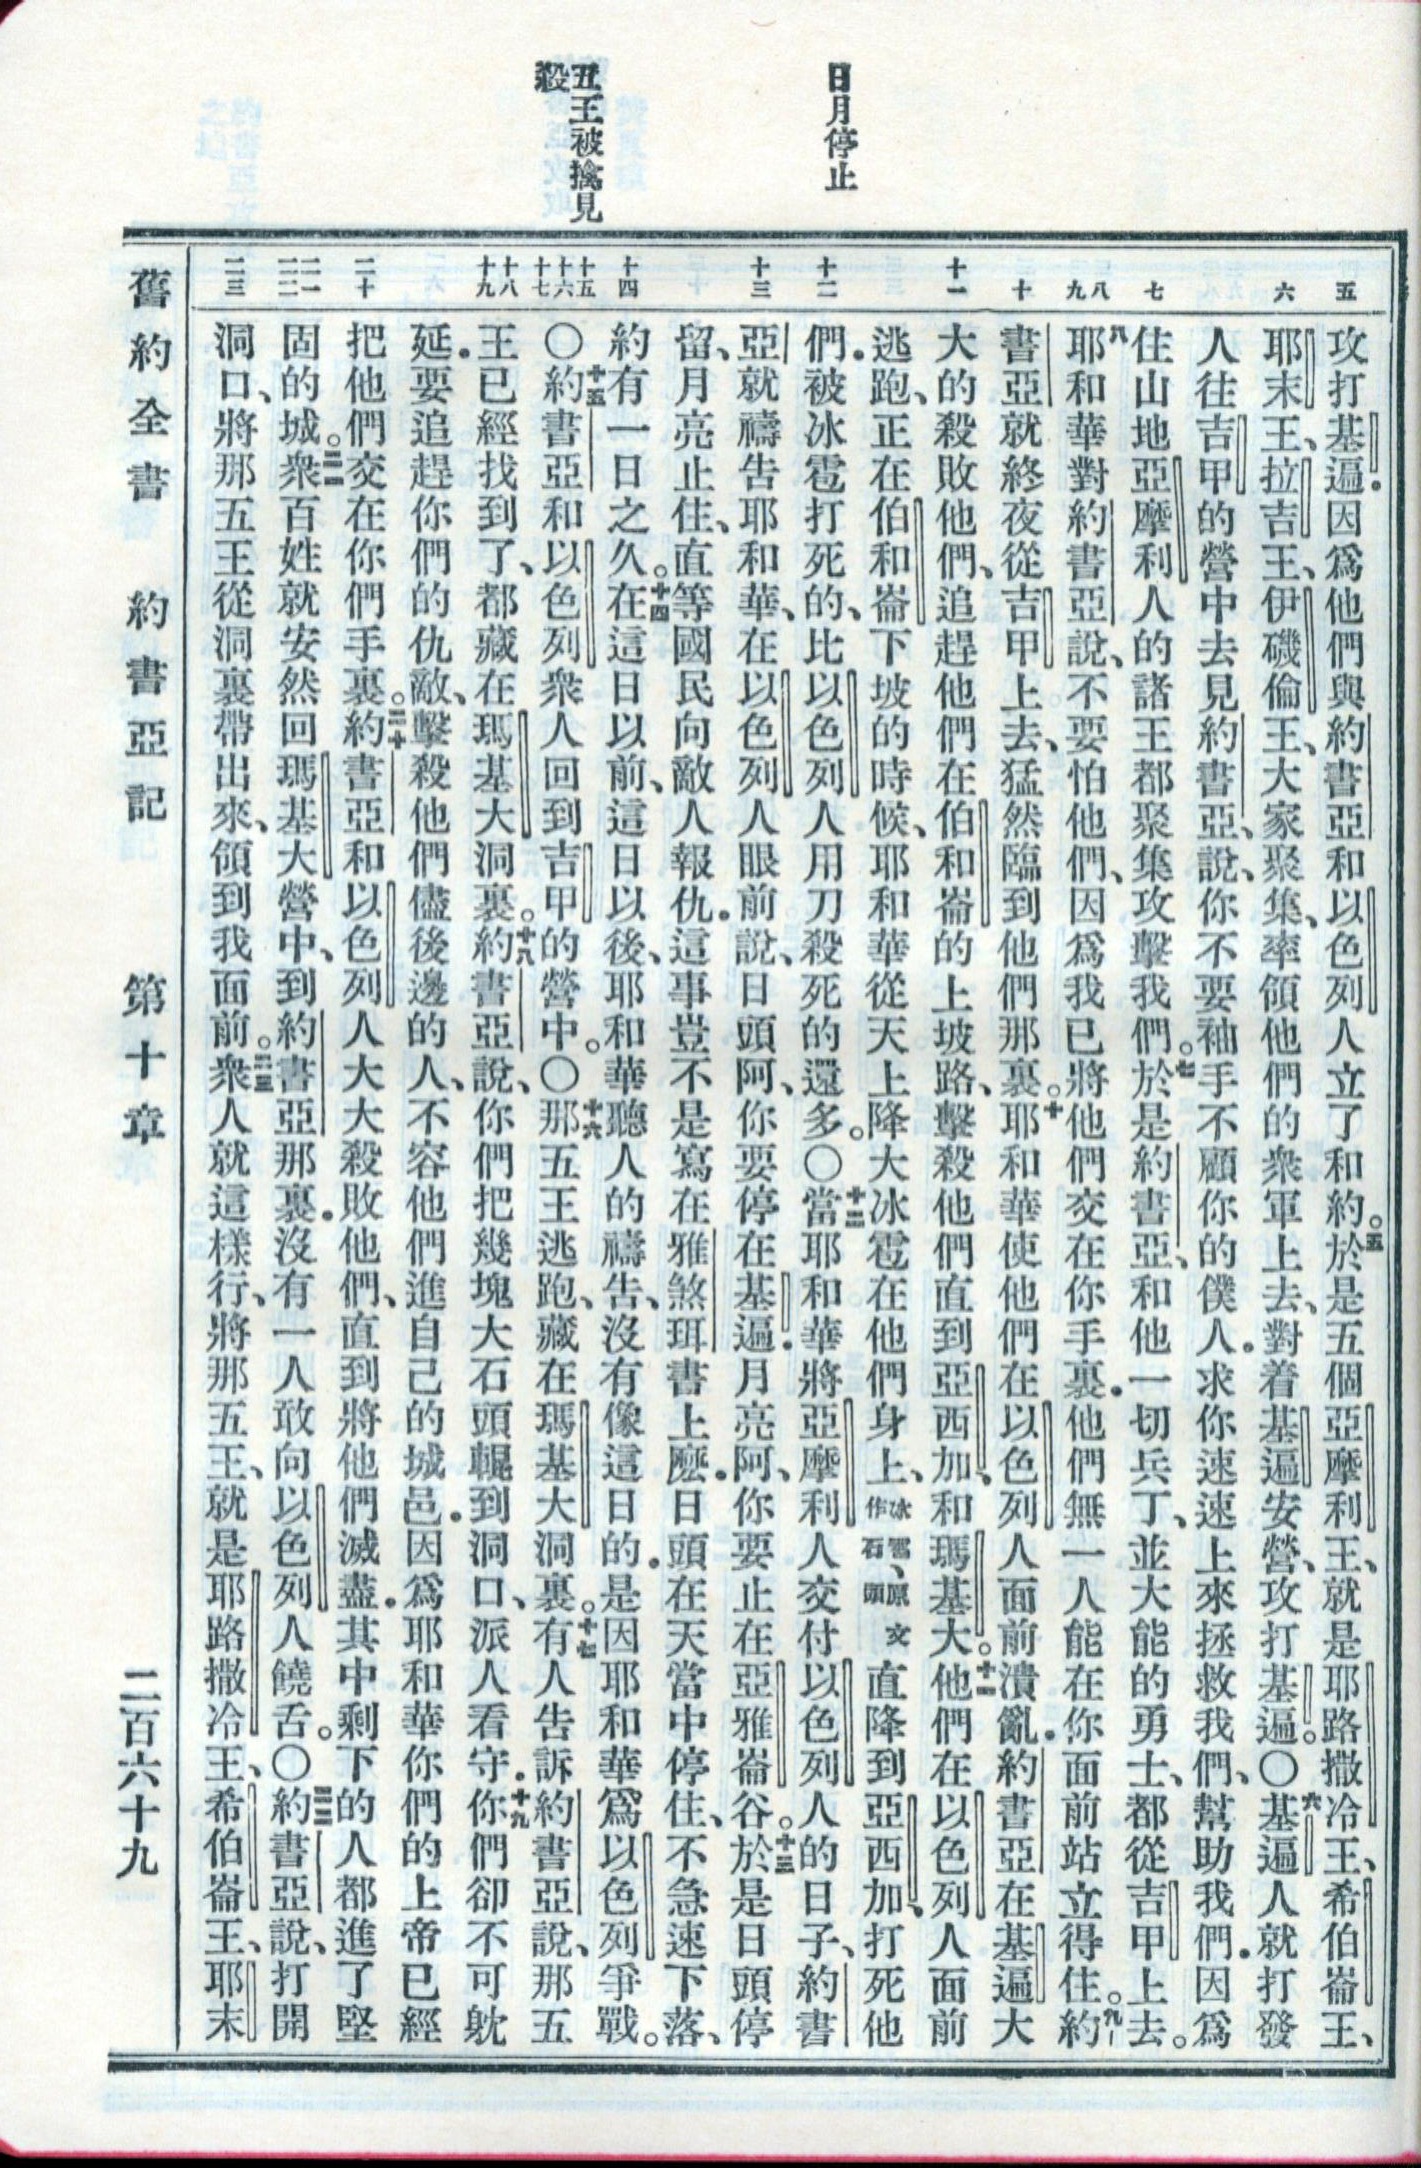 日月停止
五王被擒見
殺
五
六
七
八
九
十
十一
十二
十三
十四
十五
十六
十七
十八
十九
二十
二一
二二
二三
攻打基遍．因爲他們與約書亞和以色列人立了和約。五於是五個亞摩利王、就是耶路撒冷王、希伯崙王、
耶末王、拉吉王、伊磯倫王、大家聚集、率領他們的衆軍上去、對着基遍安營、攻打基遍。〇六基遍人就打發
人往吉甲的營中去見約書亞、說、你不要袖手不顧你的僕人．求你速速上來拯救我們、幫助我們．因爲
住山地亞摩利人的諸王都聚集攻擊我們。七於是約書亞、和他一切兵丁、並大能的勇士、都從吉甲上去。
八耶和華對約書亞說、不要怕他們、因爲我已將他們交在你手裏．他們無一人能在你面前站立得住。九約
書亞就終夜從吉甲上去、猛然臨到他們那裏。十耶和華使他們在以色列人面前潰亂．約書亞在基遍大
大的殺敗他們、追趕他們在伯和崙的上坡路、擊殺他們直到亞西加、和瑪基大。十一他們在以色列人面前
逃跑、正在伯和崙下坡的時候、耶和華從天上降大冰雹在他們身上、冰雹、原文作石頭直降到亞西加、打死他
們．被冰雹打死的、比以色列人用刀殺死的還多。〇十二當耶和華將亞摩利人交付以色列人的日子、約書
亞就禱告耶和華、在以色列人眼前說、日頭阿、你要停在基遍．月亮阿、你要止在亞雅崙谷。十三於是日頭停
留、月亮止住、直等國民向敵人報仇．這事豈不是寫在雅煞珥書上麼．日頭在天當中停住、不急速下落、
約有一日之久。十四在這日以前、這日以後、耶和華聽人的禱告、沒有像這日的．是因耶和華爲以色列爭戰。
〇十五約書亞和以色列衆人回到吉甲的營中。〇十六那五王逃跑、藏在瑪基大洞裏。十七有人告訴約書亞說、那五
王已經找到了、都藏在瑪基大洞裏。十八約書亞說、你們把幾塊大石頭輥到洞口、派人看守．十九你們卻不可躭
延．要追趕你們的仇敵、擊殺他們儘後邊的人、不容他們進自己的城邑．因爲耶和華你們的上帝已經
把他們交在你們手裏。二十約書亞和以色列人大大殺敗他們、直到將他們滅盡．其中剩下的人都進了堅
固的城。二一衆百姓就安然回瑪基大營中、到約書亞那裏．沒有一人敢向以色列人饒舌。〇二二約書亞說、打開
洞口、將那五王從洞裏帶出來、領到我面前。二三衆人就這樣行、將那五王、就是耶路撒冷王、希伯崙王、耶末
舊約全書　約書亞記　第十章　二百六十九